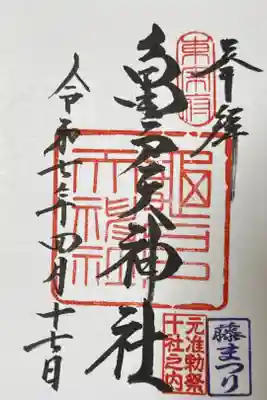 奉拝
東宰府
亀戸天神社
令和七年四月十七日
藤まつり
元准勅祭
十社之内